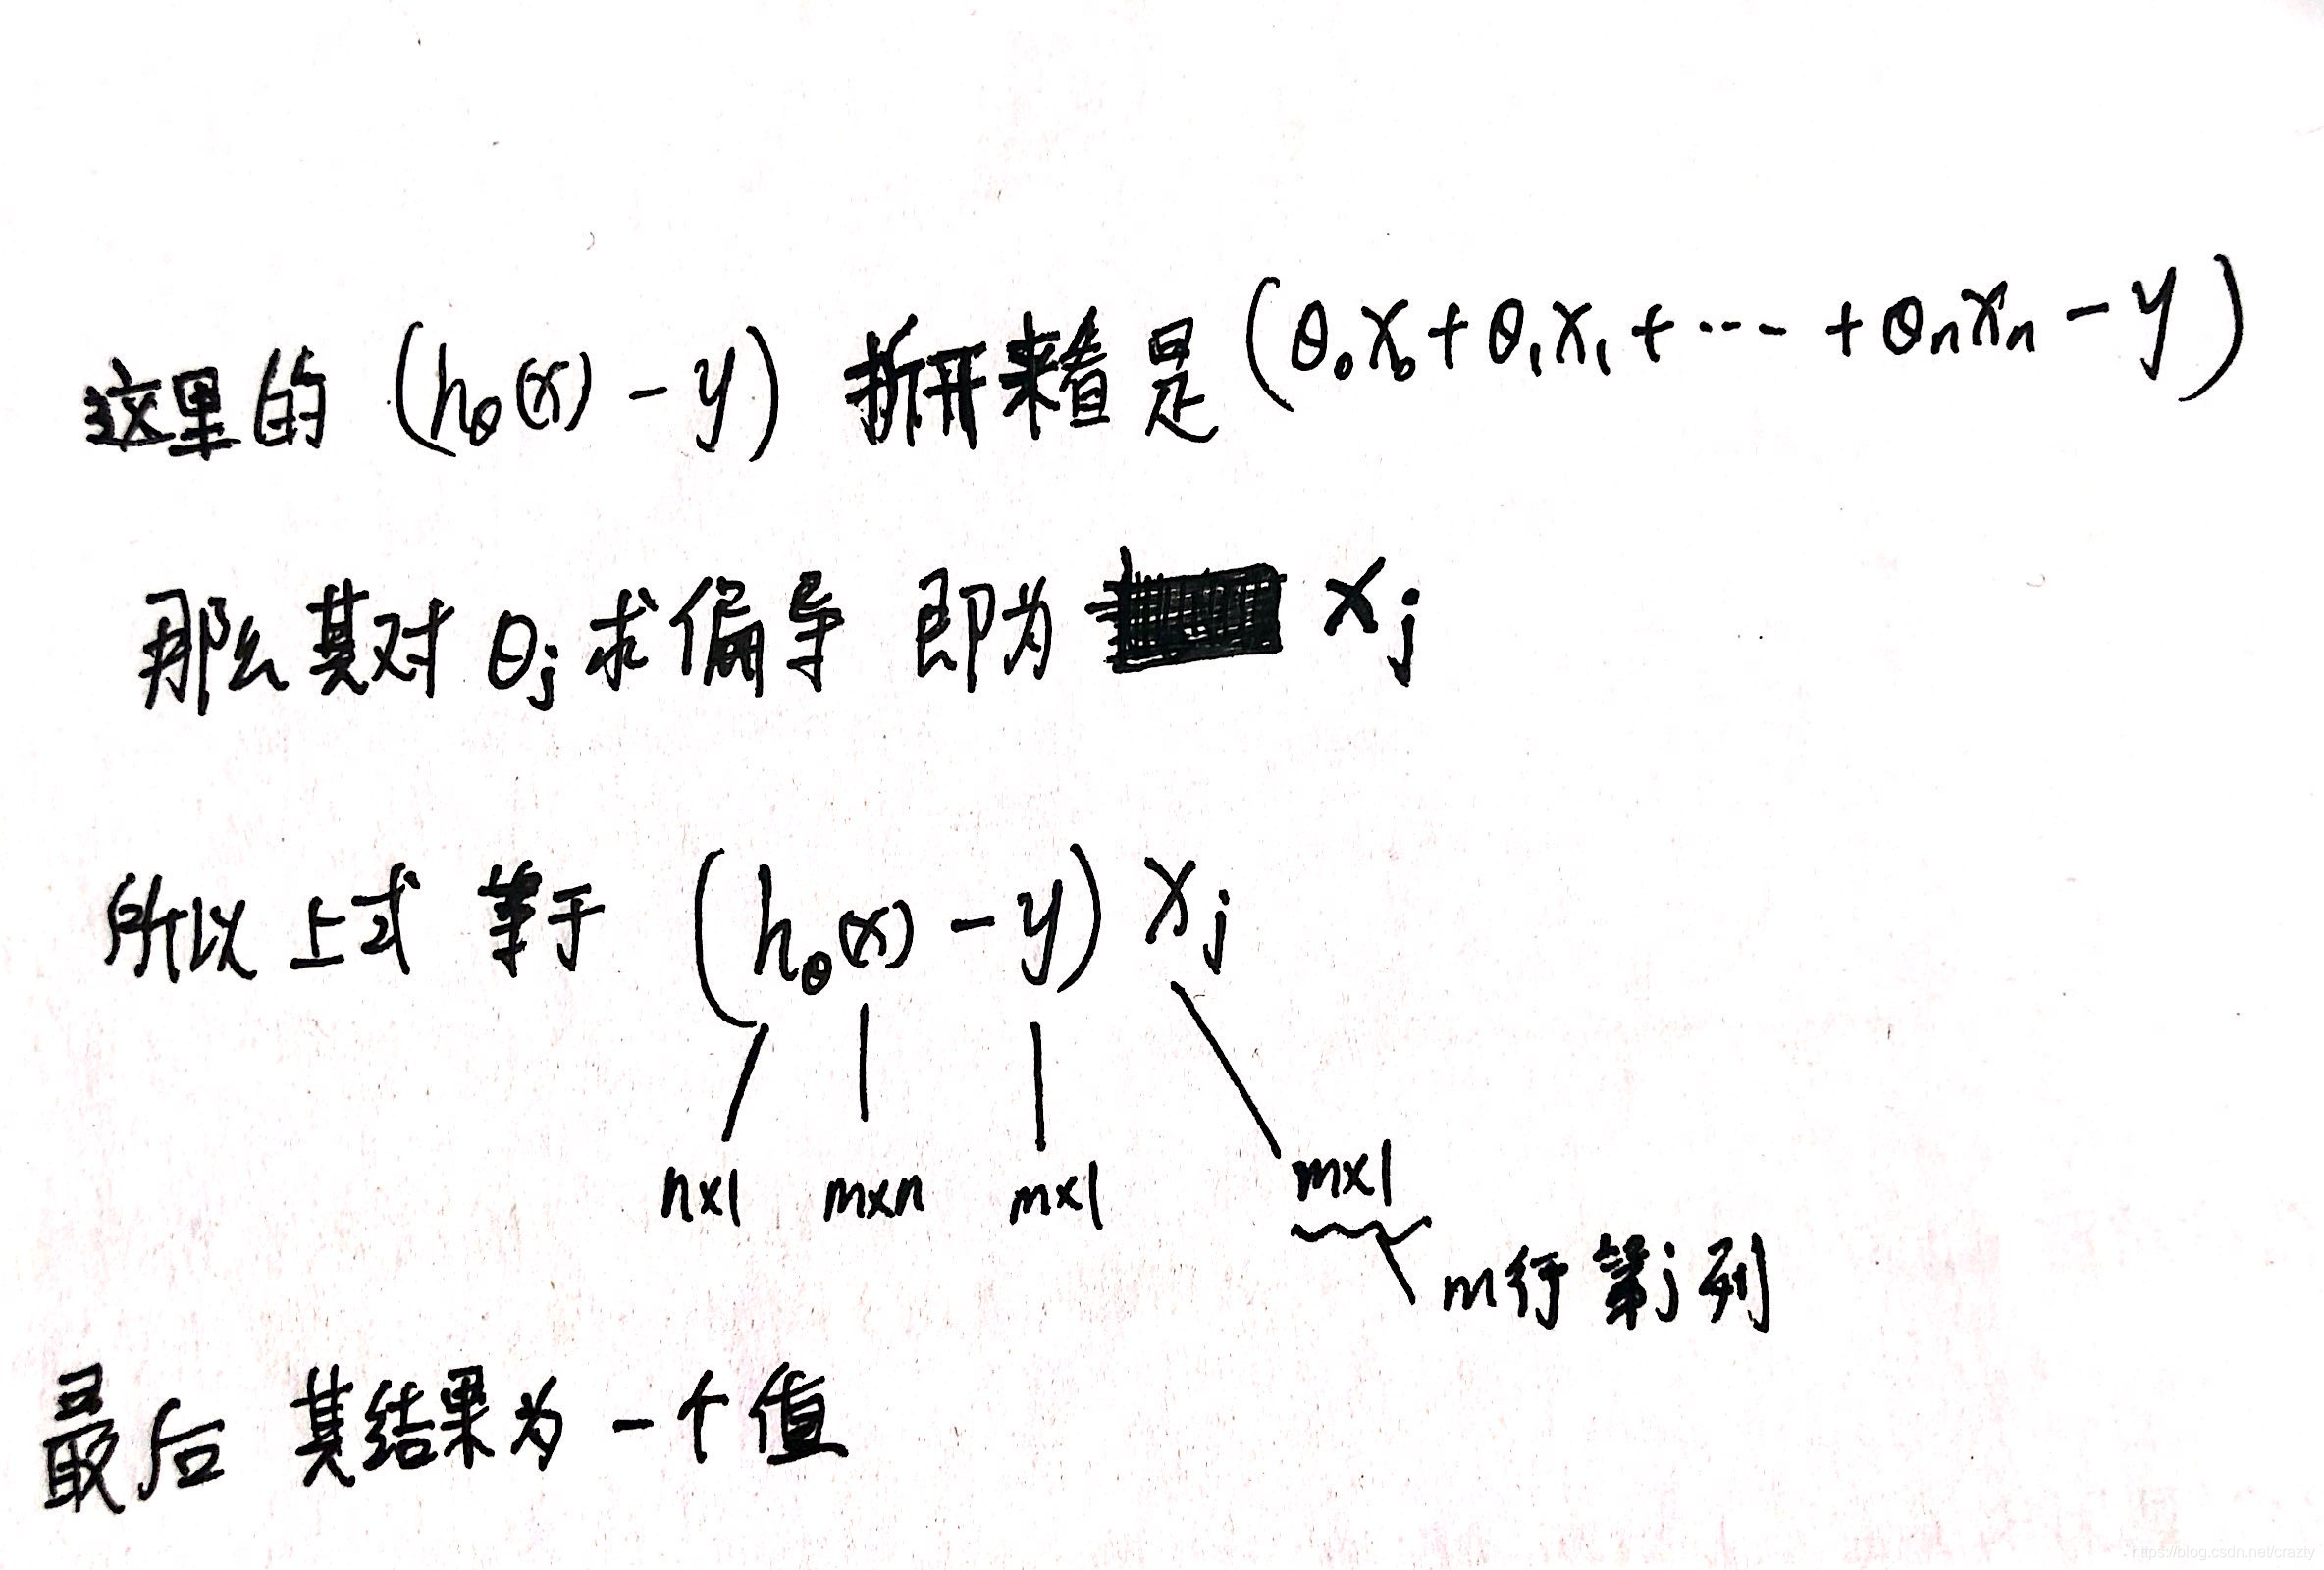 这里的 (hθ(x) - y) 拆开来看是 (θ₀x₀ + θ₁x₁ + ··· + θₙxₙ - y)
那么其对 θj 求偏导 即为 xj
所以上式 等于 (hθ(x) - y) xj
n×1 m×n m×1 m×1
m行 第j列
最后 其结果为 一个值
https://blog.csdn.net/crazty